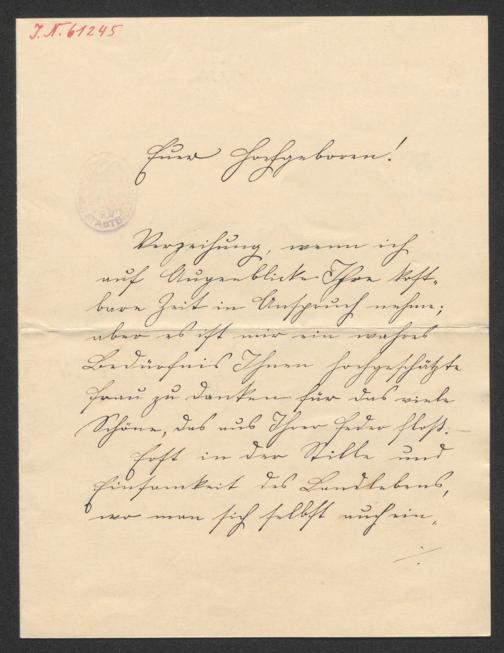 I. N. 61245
Euer Hochgeboren!
Verzeihung, wenn ich
auf Augenblicke Ihre kost-
bare Zeit in Anspruch nehme;
aber es ist mir ein wahres
Bedürfnis Ihnen hochgeschätzte
Frau zu danken für das viele
Schöne, das aus Ihrer Feder floß. –
Erst in der Stille und
Einsamkeit des Landlebens,
wo man sich selbst auch ein-
./.